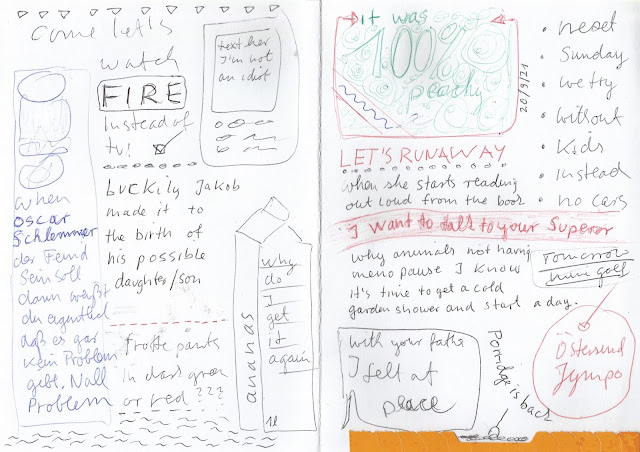 Come let's
watch
FIRE
Instead of
tv!
text her
I'm not
an idiot
when
OSCAR
Schlemmer
der Feind
Sein soll
dann weißt
du eigentlich
daß es gar
kein Problem
gebt, Null
Problem
Luckily Jakob
made it to
the birth of
his possible
daughter/son
frotte pants
in dark green
or red ???
ananas
why
do
I
get
it
again
1l
it was
100%
peachy
20/9/21
• next
• Sunday
• we try
• without
• kids
• instead
• no
LET'S RUNAWAY
when she starts reading
out loud from the book
I want to talk to your Superior
why animals not having
menopause I know
it's time to get a cold
garden shower and start a day.
Tomorrow
mini golf
with your father
I felt at
peace
Porridge is back
Östersund